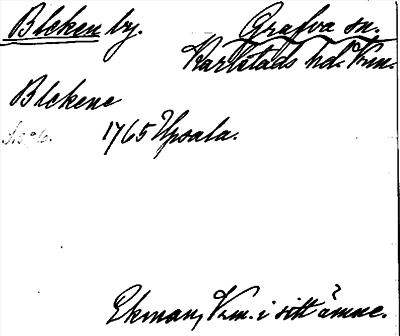 Blekan by. Grafva sn.
Karlstads hd. Vrm.
Blekene
1765 Upsala.
Ekman, Vrm. i sitt ämne.